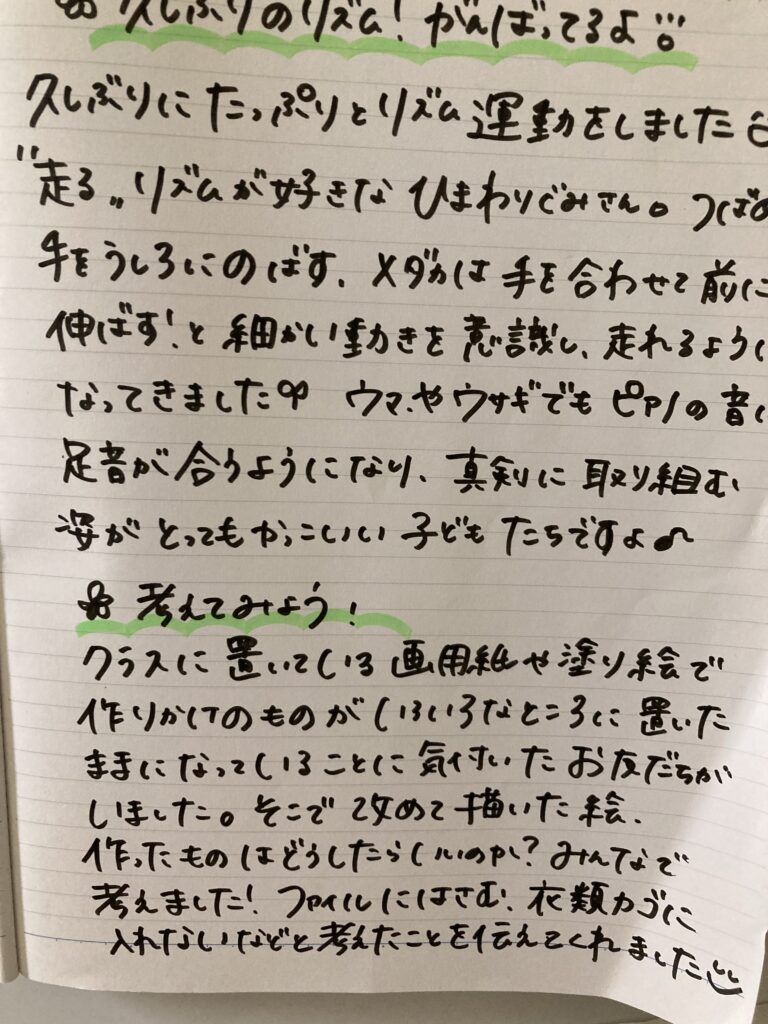 久しぶりのリズム!がんばってるよ!!
久しぶりにたっぷりとリズム運動をしました
"走る"リズムが好きなひまわりぐみさん。つばめ
手をうしろにのばす、メダカは手を合わせて前に
伸ばす!と細かい動きを意識し、走れるように
なってきました ウマやウサギでもピアノの音に
足音が合うようになり、真剣に取り組む
姿がとってもかっこいい子どもたちですよ♪
考えてみよう!
クラスに置いている画用紙や塗り絵で
作りかけのものがいろいろなところに置いた
ままになっていることに気付いたお友だちが
いました。そこで改めて描いた絵、
作ったものはどうしたらいいのか?みんなで
考えました!ファイルにはさむ、衣類カゴに
入れないなどと考えたことを伝えてくれました